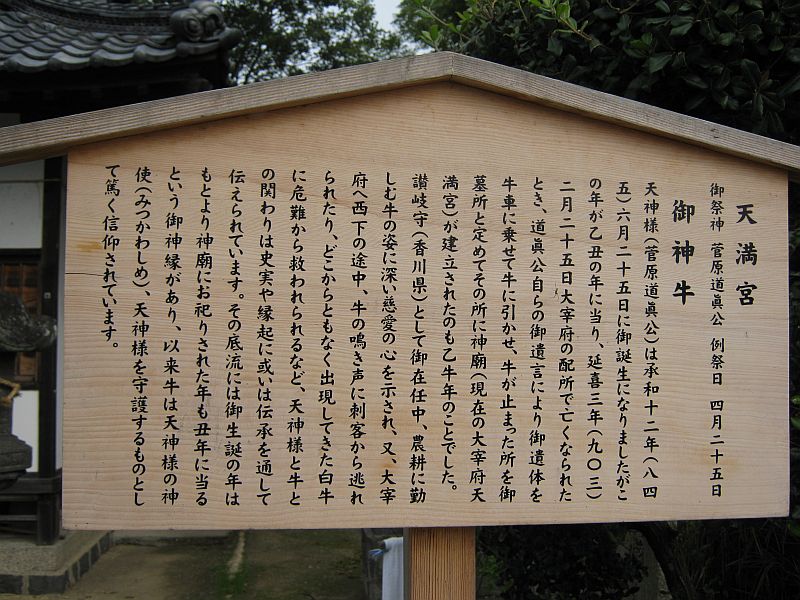 天満宮
御祭神 菅原道眞公 例祭日 四月二十五日
御神牛
天神様(菅原道眞公)は承和十二年(八四
五)六月二十五日に御誕生になりましたがこ
の年が乙丑の年に当り、延喜三年(九〇三)
二月二十五日大宰府の配所で亡くなられた
とき、道眞公自らの御遺言により御遺体を
牛車に乗せて牛に引かせ、牛が止まった所を御
墓所と定めてその所に神廟(現在の大宰府天
満宮)が建立されたのも乙牛年のことでした。
讃岐守(香川県)として御在任中、農耕に勤
しむ牛の姿に深い慈愛の心を示され、又、大宰
府へ西下の途中、牛の鳴き声に刺客から逃れ
られたり、どこからともなく出現してきた白牛
に危難から救われられるなど、天神様と牛と
の関わりは史実や縁起に或いは伝承を通して
伝えられています。その底流には御生誕の年は
もとより神廟にお祀りされた年も丑年に当る
という御神縁があり、以来牛は天神様の神
使(みつかわしめ)、天神様を守護するものとし
て篤く信仰されています。